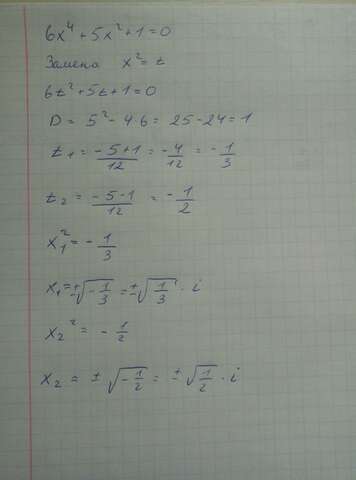 6x⁴ + 5x² + 1 = 0
Замена x² = t
6t² + 5t + 1 = 0
D = 5² - 4·6 = 25 - 24 = 1
t₁ = (-5+1)/12 = -4/12 = -1/3
t₂ = (-5-1)/12 = -1/2
x₁² = -1/3
x₁ = ±√(-1/3) = ±√(1/3) · i
x₂² = -1/2
x₂ = ±√(-1/2) = ±√(1/2) · i